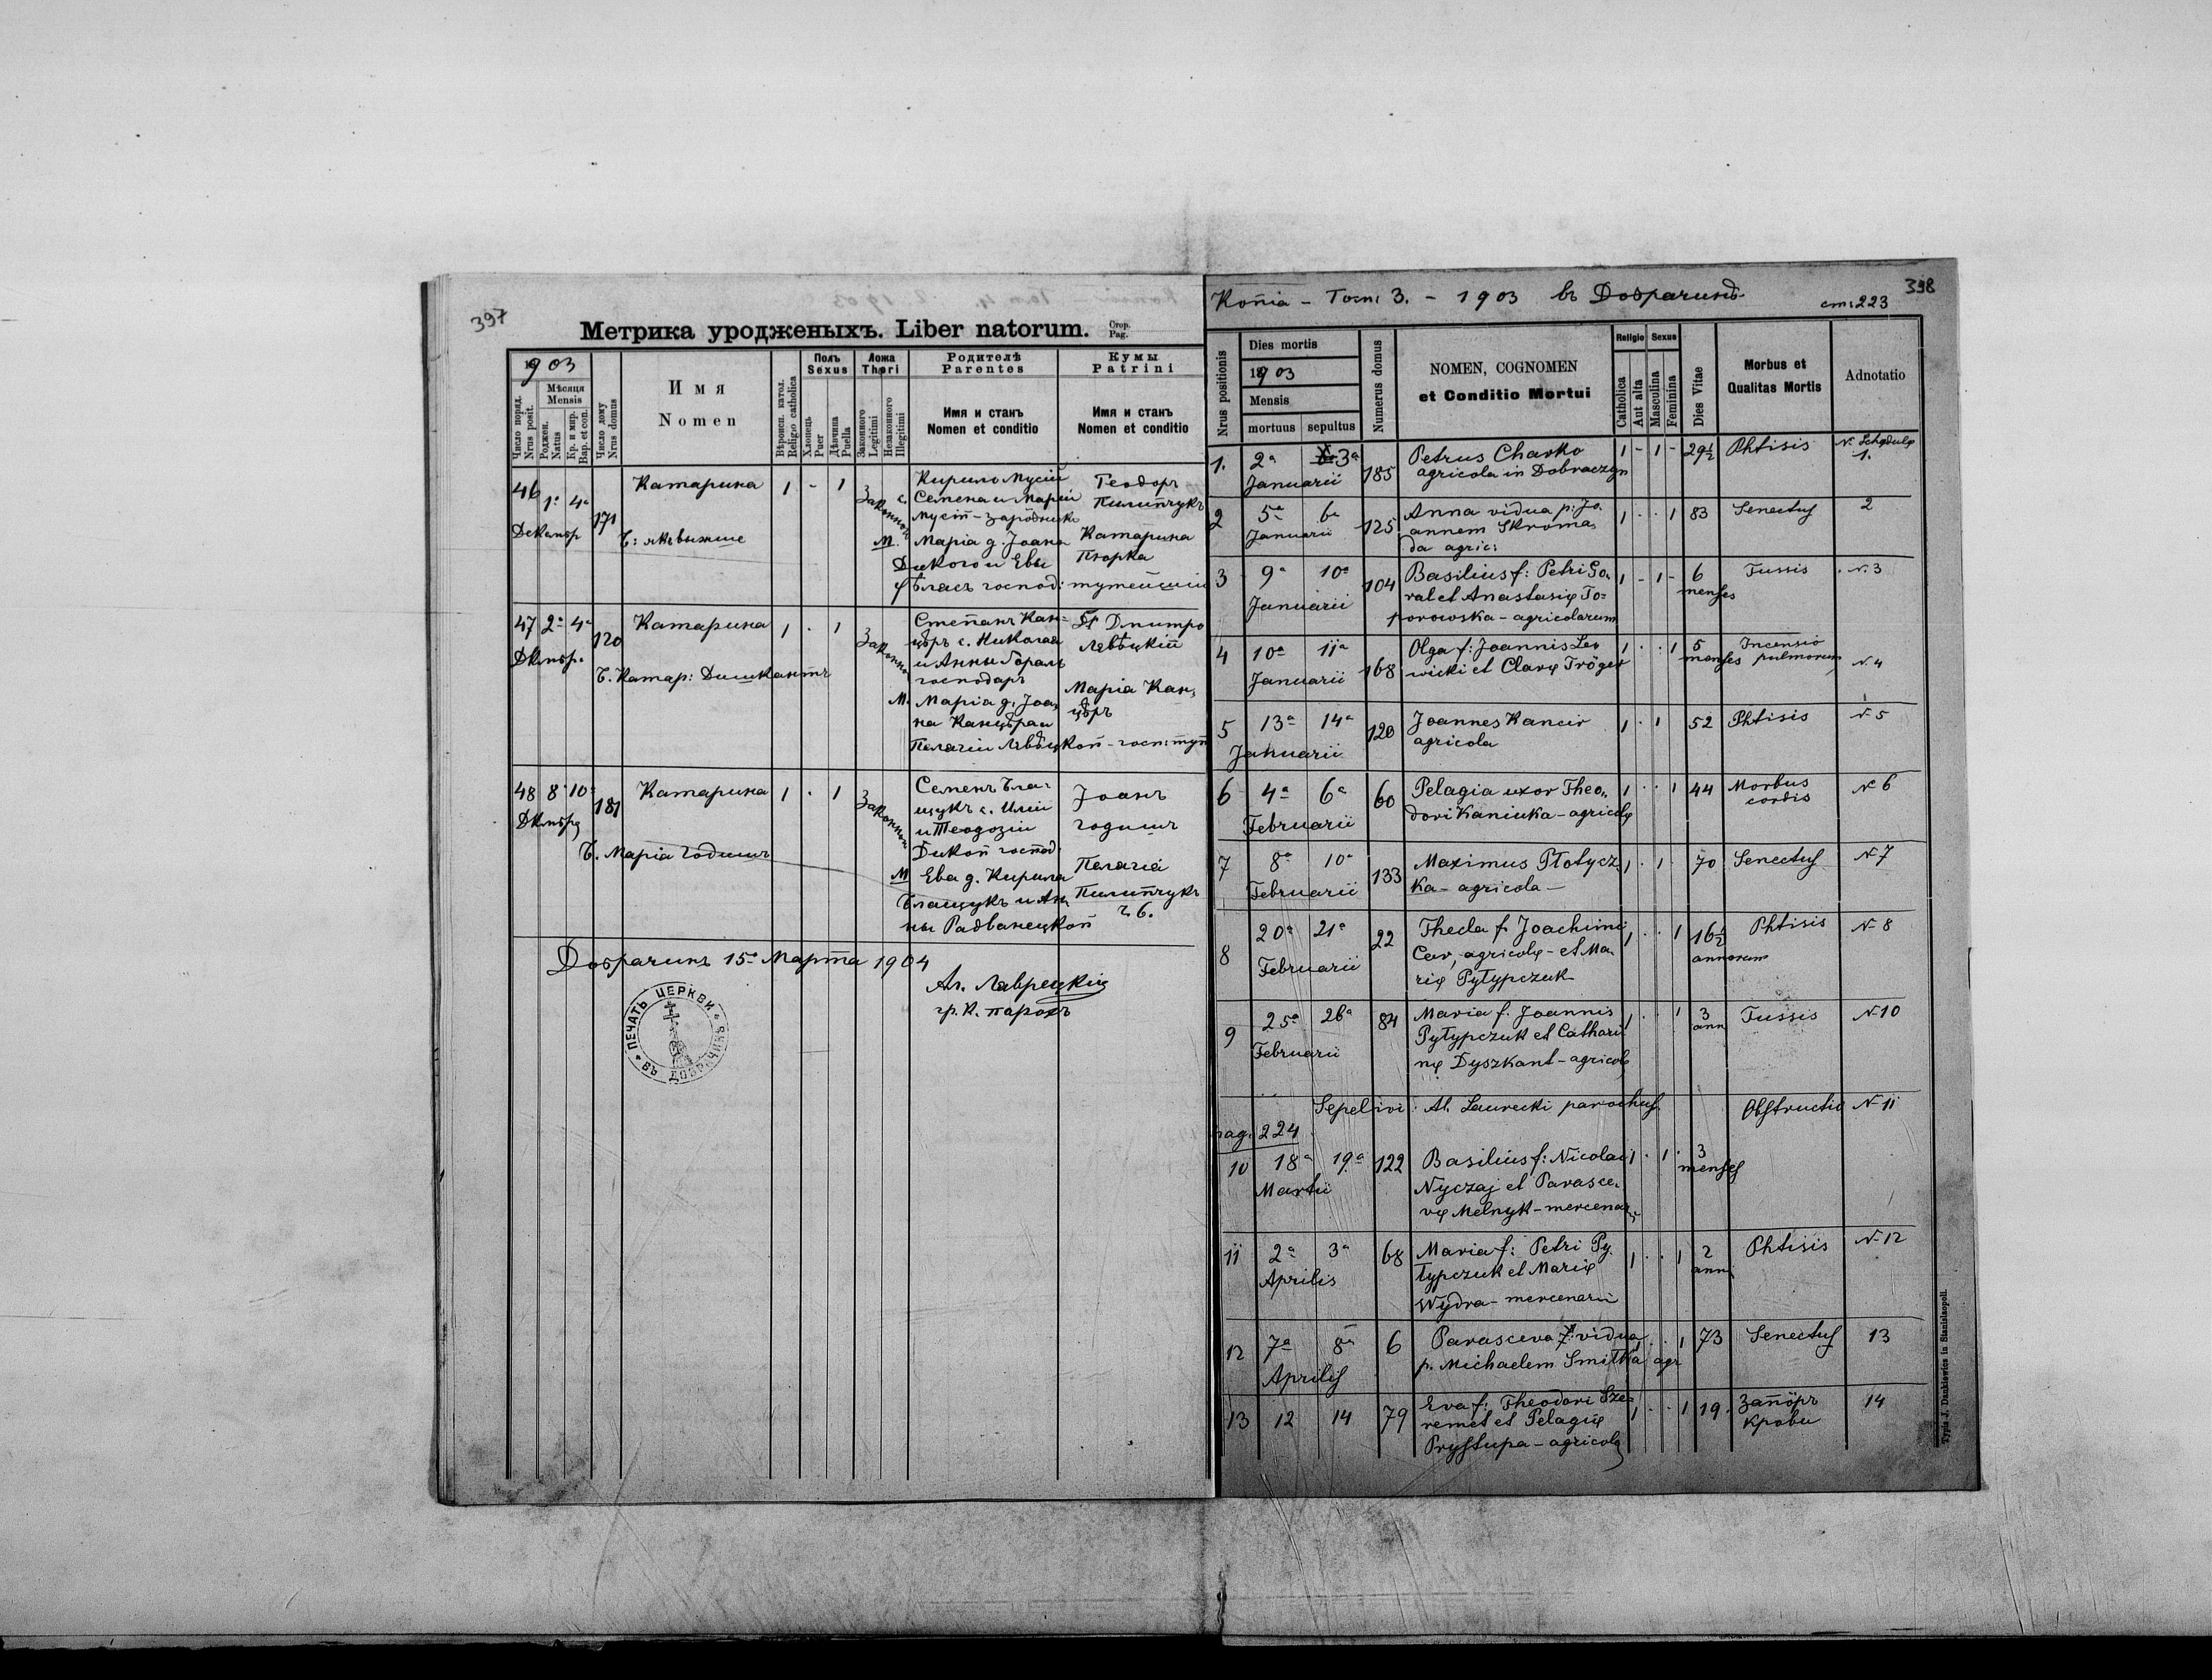 397
Метрика уродженыхъ. Liber natorum. Стор. Pag.
1903
Число поряд. Nrus posit.
Мѣсяця Mensis
Роджен. Natus
Кр. и мѵр. Bap. et con.
Число дому Nrus domus
Имя
Nomen
Вѣроисп. катол. Religio catholica
Полъ Sexus
Хлопець Puer
Дѣвчина Puella
Ложа Thori
Законного Legitimi
Незаконного Illegitimi
Родителѣ Parentes
Имя и станъ Nomen et conditio
Кумы Patrini
Имя и станъ Nomen et conditio
46 1ᵃ 4ᵃ Декемвр 171
Катарина 1 - 1
Б: якъ выжше
Законное
Кирило Мусій
с. Семена и Маріи
Мусій - зарôбникъ
М. Марія д. Іоана
Дикого и Евы
господ:
Теодоръ
Пилипчукъ
Катарина
Пюрка
тутейшіи
47 2ᵃ 4ᵃ Дкмвр. 120
Катарина 1 · 1
Б. Катар: Дишкантъ
Законное
Степанъ Кан-
цѣръ с. Николая
и Анны Гораль
господарь
М. Марія д. Іоа-
на Канцѣра и
Пелагіи Лявѣцкой - госп: тут
Дмитро
Лявѣцкій
Марія Кан-
цѣръ
48 8 10 Дкмвр 181
Катарина 1 · 1
Б. Марія Годишъ
Законное
Семенъ Бла-
щукъ с. Иліи
и Теодозіи
Дикой господ:
М Ева д. Кирила
Блащукъ и Ан-
ны Радванецкой
Іоанъ
Годишъ
Пелагія
Пилипчукъ
Добрачинъ 15ᵃ Марта 1904
Ал. Лаврецкій
гр. к. парохъ
ПЕЧАТЬ ЦЕРКВИ ВЪ ДОБРАЧИНѢ
Копіа - Том: 3. - 1903 въ Добрачинѣ
ст: 223
398
Nrus positionis
Dies mortis
1903
Mensis
mortuus sepultus
Numerus domus
NOMEN, COGNOMEN
et Conditio Mortui
Religio
Catholica
Aut alta
Sexus
Masculina
Feminina
Dies Vitae
Morbus et
Qualitas Mortis
Adnotatio
1. 2ᵃ 3ᵃ Januarii 185
Petrus Charko
agricola in Dobraczyn
1 - 1 - 29½ Phtisis N. Schedulę 1.
2 5ᵃ 6ᵃ Januarii 125
Anna vidua p: Jo-
annem Skroma-
da agric:
1 · · 1 83 Senectus 2
3 9ᵃ 10ᵃ Januarii 104
Basilius f: Petri Go-
ral et Anastasię To-
porowska - agricolarum
1 - 1 - 6 menses Tussis N. 3
4 10ᵃ 11ᵃ Januarii 168
Olga f: Joannis Lew
wicki et Clarę Tröger
1 · · 1 5 menses Incensio pulmorum N. 4
5 13ᵃ 14ᵃ Januarii 120
Joannes Kancir
agricola
1 · 1 52 Phtisis N 5
6 4ᵃ 6ᵃ Februarii 60
Pelagia uxor Theo-
dori Kaniuka - agricolę
1 · · 1 44 Morbus cordis N 6
7 8ᵃ 10ᵃ Februarii 133
Maximus Płotycz-
ka - agricola -
1 · 1 · 70 Senectus N 7
8 20ᵃ 21ᵃ Februarii 22
Thecla f. Joachimi
Caw, agricolę - et Ma-
rię Pyłypczuk
1 · · 1 16½ annorum Phtisis N 8
9 25ᵃ 26ᵃ Februarii 84
Maria f. Joannis
Pyłypczuk et Cathari-
nę Dyszkant - agricolę
1 · · 1 3 ann Tussis N 10
Sepelivi: Al. Laurecki parochus.
Obstructio N 11
pag. 224
10 18ᵃ 19ᵃ Martii 122
Basilius f: Nicolai
Nyczaj et Parasce-
vę Melnyk - mercenar.
1 · 1 · 3 menses
11 2ᵃ 3ᵃ Aprilis 68
Maria f: Petri Py-
łypczuk et Marię
Wydra - mercenarii
1 · · 1 2 anni Phtisis N 12
12 7ᵃ 8ᵃ Aprilis 6
Parasceva vidua
p. Michaelem Smitka agr
1 · · 1 73 Senectus 13
13 12 14 79
Eva f: Theodori Sze-
remet et Pelagię
Prystupa - agricolę
1 · · 1 19. Запôръ крови 14
Typis J. Dankiewicz in Stanislaopoli.